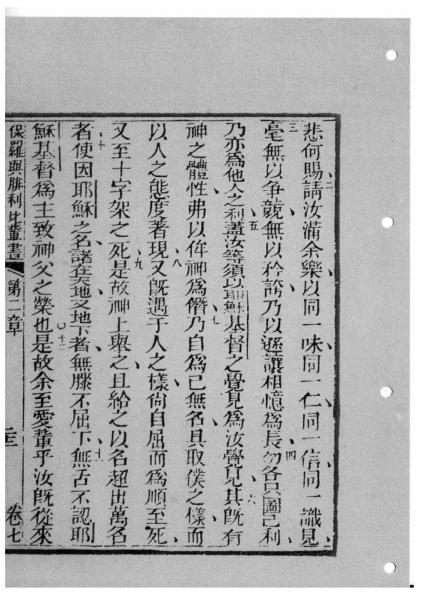 悲何賜請汝滿余樂以同一味同一仁同一信同一識見
毫無以爭競無以矜誇乃以遜讓相憶爲長勿各只圖己利
乃亦爲他人之利蓋汝等須以耶穌基督之覺見爲汝覺見其既有
神之體性弗以侔神爲僭乃自爲己無名具取僕之樣而
以人之態度著現又既遇于人之樣尚自屈而爲順至死
又至十字架之死是故神上舉之且給之以名超出萬名
者使因耶穌之名諸在天地又地下者無膝不屈下無舌不認耶
穌基督爲主致神父之榮也是故余至愛輩乎汝既從來
保羅與腓利比輩書 第二章 卷七
二
三
四
五
六
七
八
九
十
十一
十二